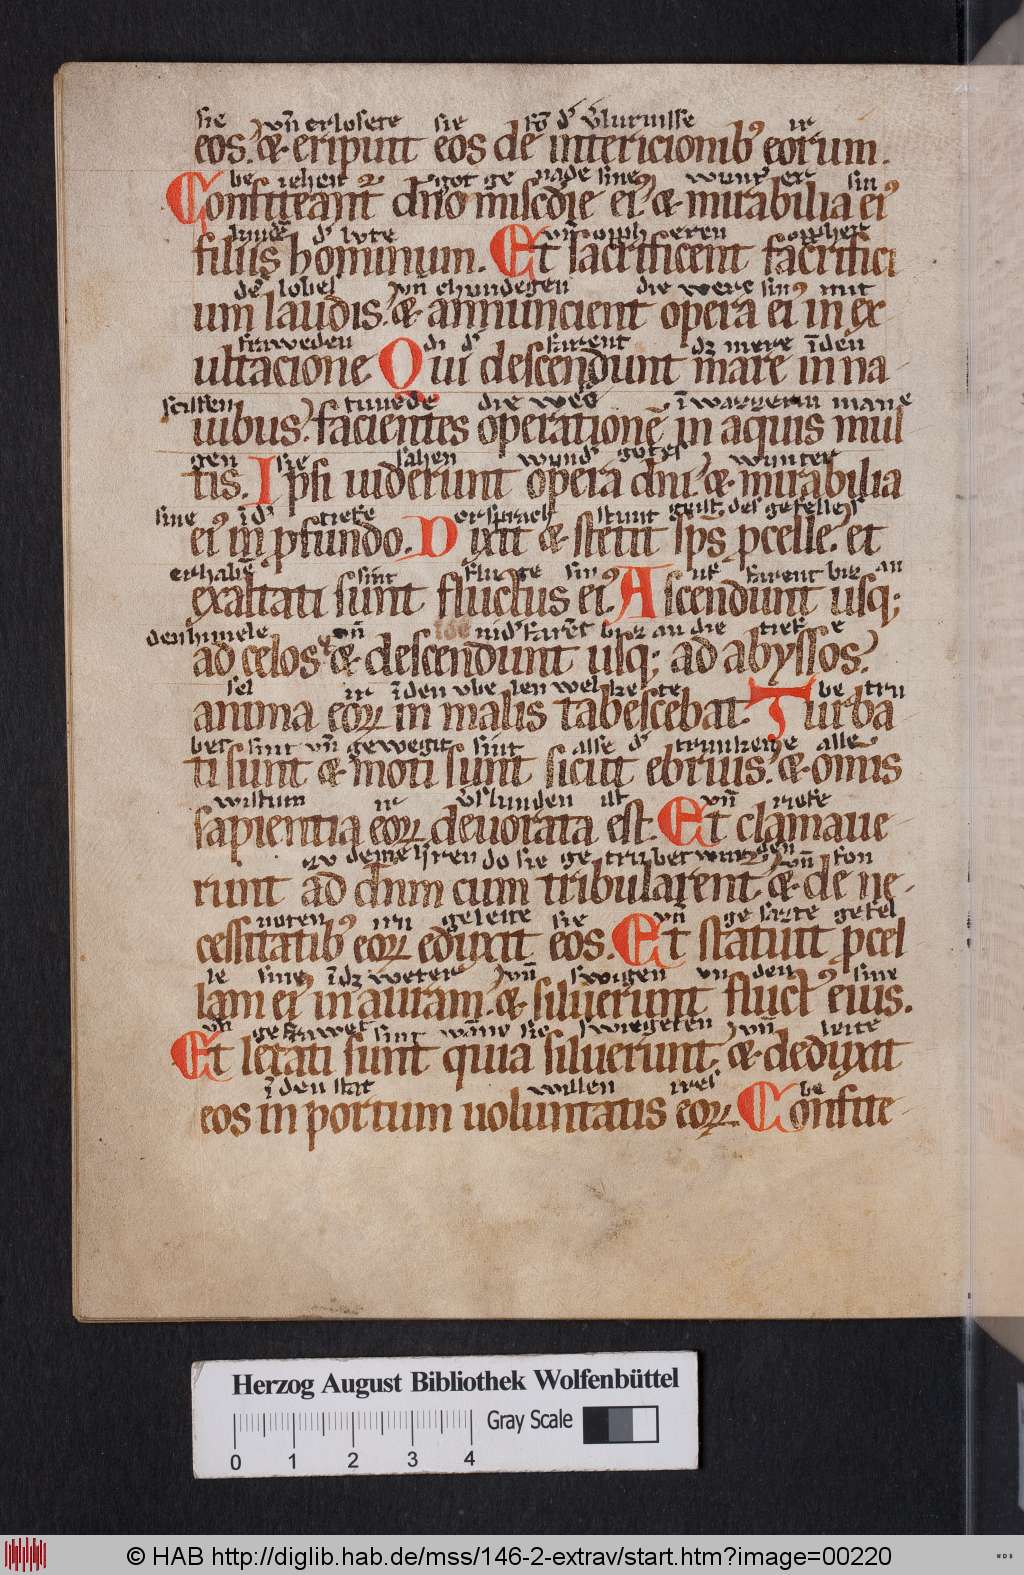 sie vñ erlosete sie ir
eos. & eripuit eos de intericionib; eorum.
be iehen got ge nade sines wunder sin
Confiteant dño miscdie ei. & mirabilia ei
filiis hominum. Et sacrificent sacrifici
des lobes vñ chundegen die werc sin mit
um laudis. & annuncient opera ei in ex
di farent dz mere ī den
ultacione Qui descendunt mare in na
die in wazzeren mane
uibus. facientes operationē in aquis mul
gen sie sahen gotes wunter
tis. Ipsi uiderunt opera dni. & mirabilia
sine tiefe er sprach stunt geist des
ei in pfundo. Dixit & stetit sps pcelle. et
sint sin farent biz an
exaltati sunt fluctus ei. Ascendunt usq;
den himele vñ nid farēt biz an die tiefe
ad celos. & descendunt usq; ad abyssos.
sel ir ī den be tru
anima eoꝝ in malis tabescebat. Turba
bet sint vñ gewegit sint alse alle
ti sunt & moti sunt sicut ebrius. & omis
wistum ir ist vñ riefe
sapientia eoꝝ deuorata est. Et clamaue
do sie ge trubet wurden vñ fon
runt ad dnm cum tribularent & de ne
noten geleite sie vñ ge sazte gefel
cessitatib; eoꝝ eduxit eos. Et statuit pcel
le sine ī dz wetere vñ swigen sine
lam ei in auram. & siluerunt fluct eius.
vñ sint wāne sie swiegeten vñ leite
Et letati sunt quia siluerunt. & deduxit
ī den stat willen be
eos in portum uoluntatis eoꝝ. Confite
Herzog August Bibliothek Wolfenbüttel
Gray Scale
0 1 2 3 4
© HAB http://diglib.hab.de/mss/146-2-extrav/start.htm?image=00220